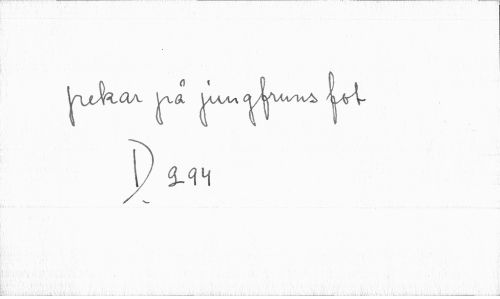 pekar på jungfruns fot
D. 294